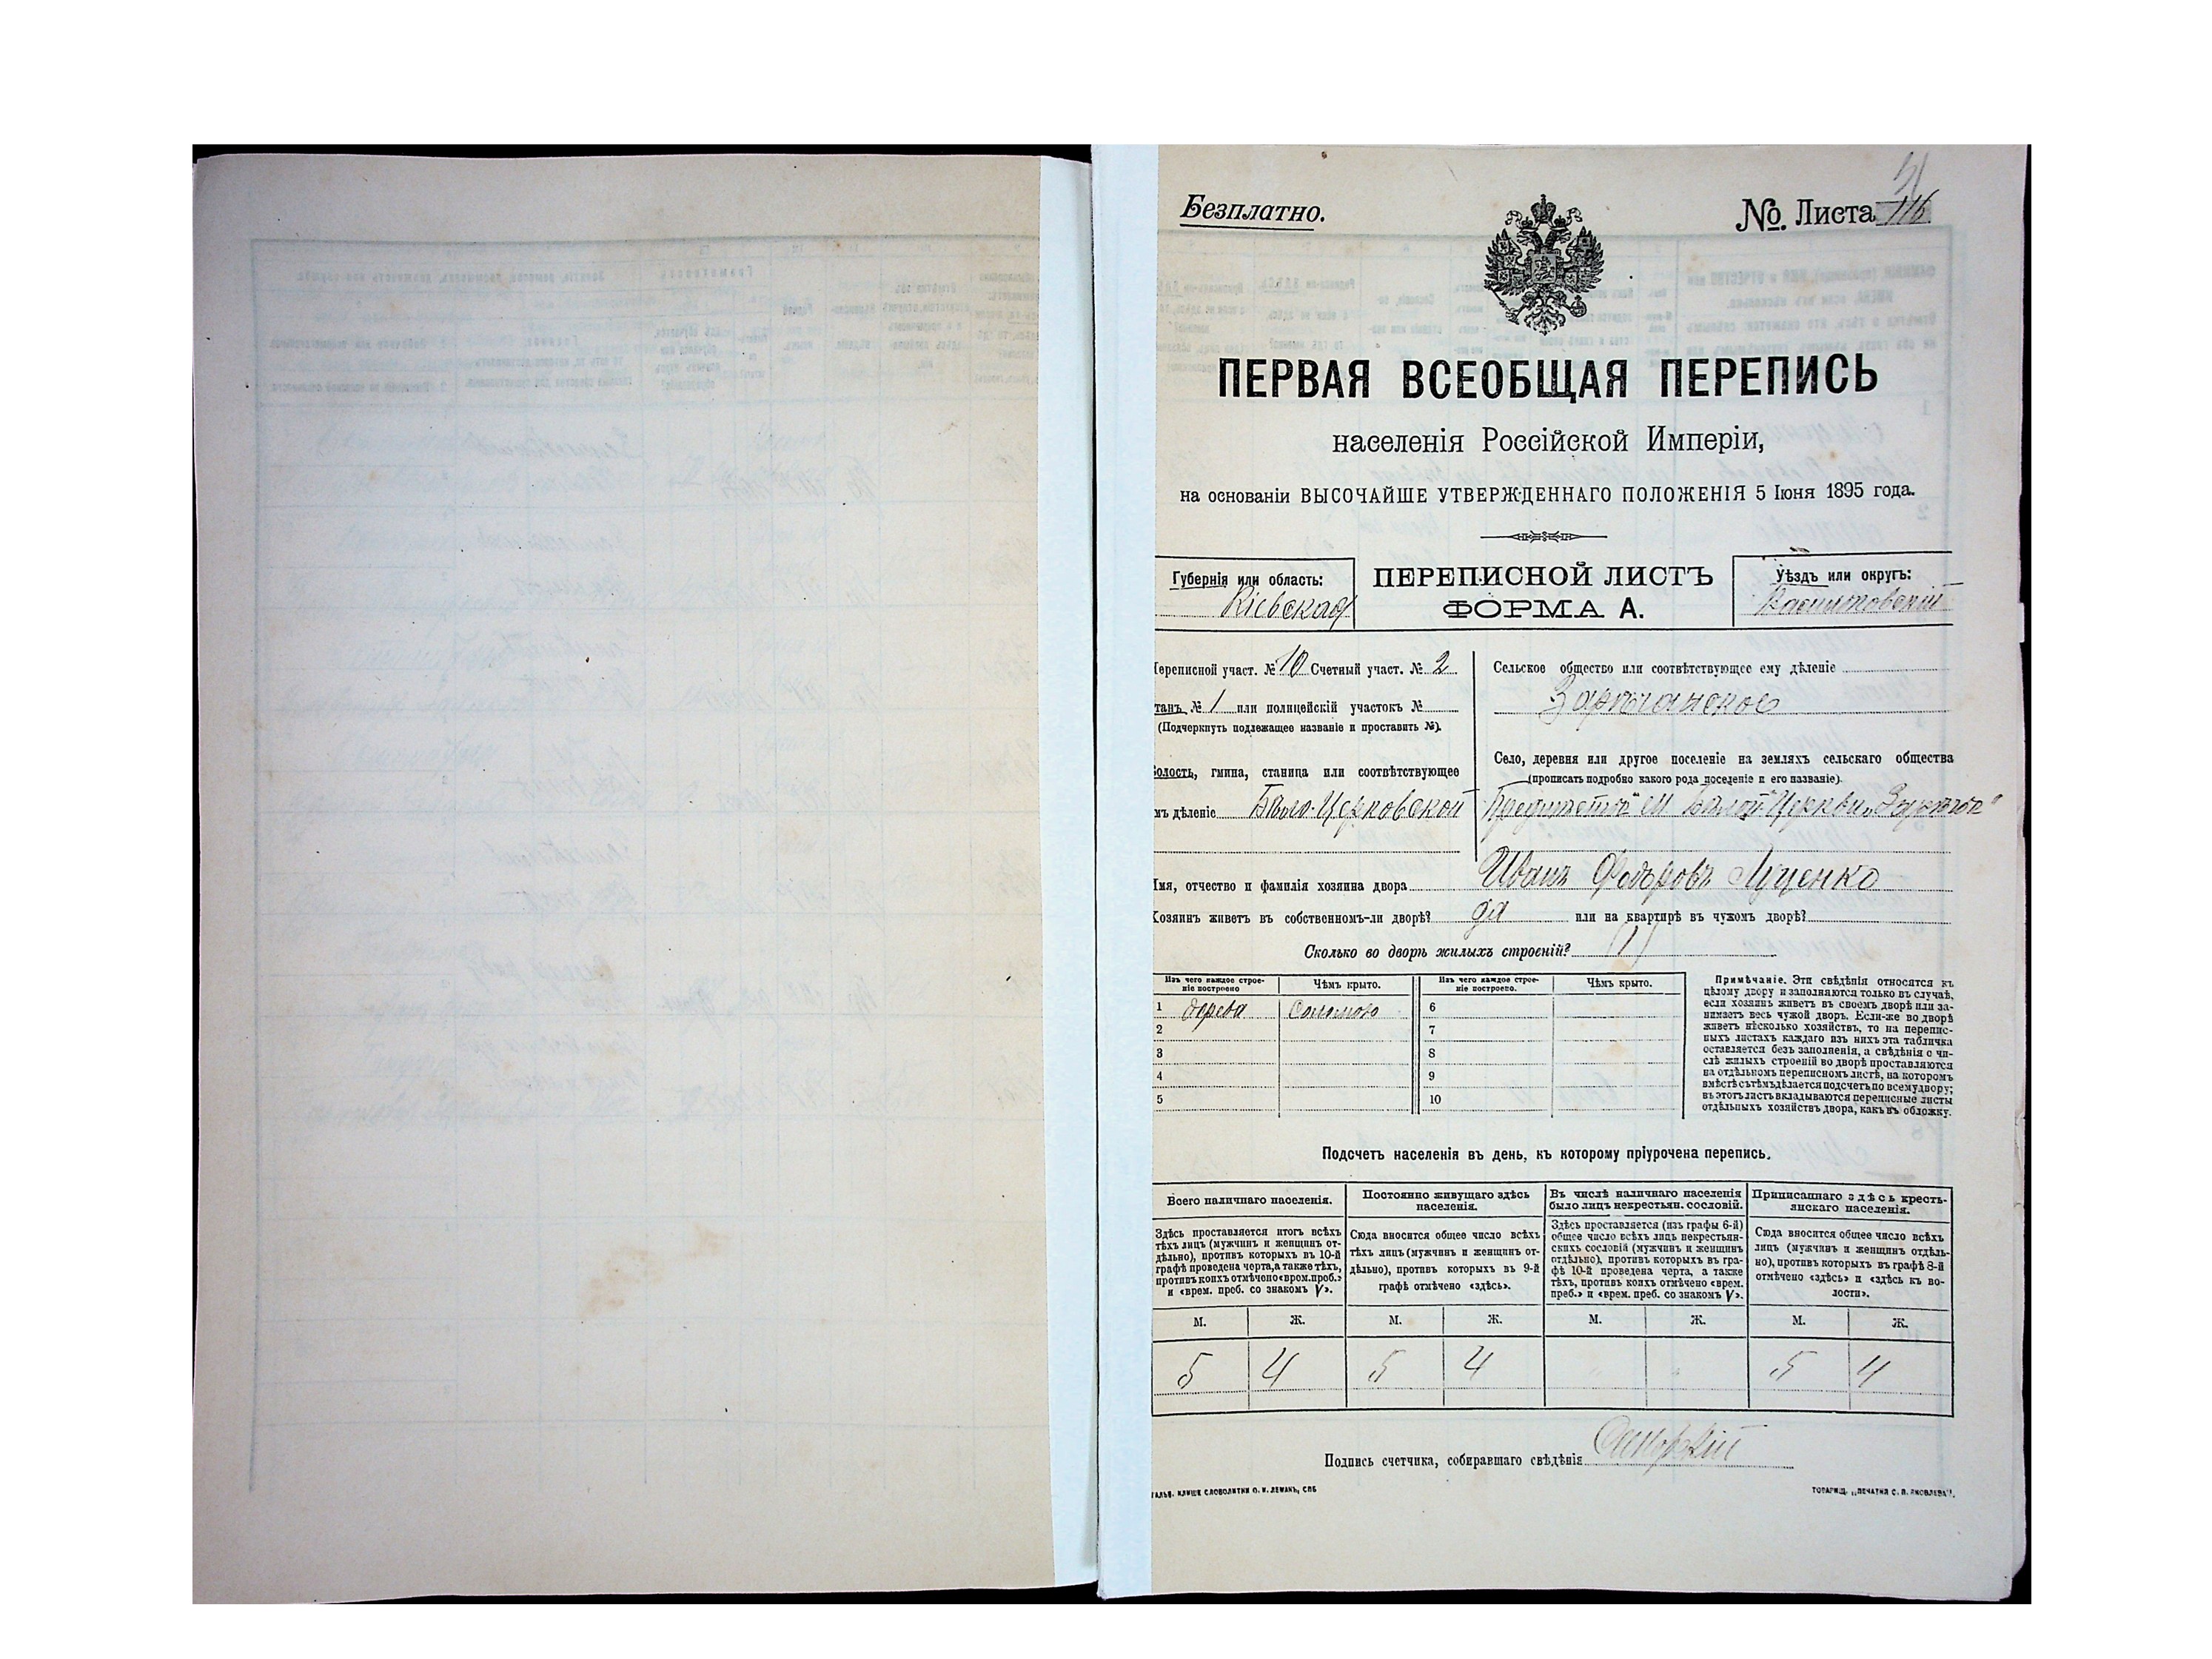 Безплатно.
№ Листа 116
ПЕРВАЯ ВСЕОБЩАЯ ПЕРЕПИСЬ
населенія Россійской Имперіи,
на основаніи ВЫСОЧАЙШЕ УТВЕРЖДЕННАГО ПОЛОЖЕНІЯ 5 Іюня 1895 года.
Губернія или область:
Кіевская
ПЕРЕПИСНОЙ ЛИСТЪ
ФОРМА А.
Уѣздъ или округъ:
Васильковскій
Переписной участ. № 10 Счетный участ. № 2
танъ № 1 или полицейскій участокъ №
(Подчеркнуть подлежащее названіе и проставить №).
Волость, гмина, станица или соотвѣтствующее
мъ дѣленіе Бѣло-Церковской
Сельское общество или соотвѣтствующее ему дѣленіе
Зарѣчанское
Село, деревня или другое поселеніе на земляхъ сельскаго общества
(прописать подробно какого рода поселеніе и его названіе).
Предмѣстье М Бѣлой Церкви „Зарѣчье"
Имя, отчество и фамилія хозяина двора Иванъ Федоровъ Луценко
Хозяинъ живетъ въ собственномъ-ли дворѣ? да или на квартирѣ въ чужомъ дворѣ?
Сколько во дворѣ жилыхъ строеній? (1)
Изъ чего каждое строе-
ніе построено
Чѣмъ крыто.
Изъ чего каждое строе-
ніе построено.
Чѣмъ крыто.
1 дерева Соломою 6
2 7
3 8
4 9
5 10
Примѣчаніе. Эти свѣдѣнія относятся къ
цѣлому двору и заполняются только въ случаѣ,
если хозяинъ живетъ въ своемъ дворѣ или за-
нимаетъ весь чужой дворъ. Если-же во дворѣ
живетъ нѣсколько хозяйствъ, то на перепис-
ныхъ листахъ каждаго изъ нихъ эта табличка
оставляется безъ заполненія, а свѣдѣнія о чи-
слѣ жилыхъ строеній во дворѣ проставляются
на отдѣльномъ переписномъ листѣ, на которомъ
вмѣстѣ съ тѣмъ дѣлается подсчетъ по всему двору;
въ этотъ листъ вкладываются переписные листы
отдѣльныхъ хозяйствъ двора, какъ въ обложку.
Подсчетъ населенія въ день, къ которому пріурочена перепись.
Всего наличнаго населенія.
Здѣсь проставляется итогъ всѣхъ
тѣхъ лицъ (мужчинъ и женщинъ от-
дѣльно), противъ которыхъ въ 10-й
графѣ проведена черта, а также тѣхъ,
противъ коихъ отмѣчено «врем. преб.»
и «врем. преб. со знакомъ V».
Постоянно живущаго здѣсь
населенія.
Сюда вносится общее число всѣхъ
тѣхъ лицъ (мужчинъ и женщинъ от-
дѣльно), противъ которыхъ въ 9-й
графѣ отмѣчено «здѣсь».
Въ числѣ наличнаго населенія
было лицъ некрестьян. сословій.
Здѣсь проставляется (изъ графы 6-й)
общее число всѣхъ лицъ некрестьян-
скихъ сословій (мужчинъ и женщинъ
отдѣльно), противъ которыхъ въ гра-
фѣ 10-й проведена черта, а также
тѣхъ, противъ коихъ отмѣчено «врем.
преб.» и «врем. преб. со знакомъ V».
Приписаннаго здѣсь кресть-
янскаго населенія.
Сюда вносится общее число всѣхъ
лицъ (мужчинъ и женщинъ отдѣль-
но), противъ которыхъ въ графѣ 8-й
отмѣчено «здѣсь» и «здѣсь къ во-
лости».
М. Ж. М. Ж. М. Ж. М. Ж.
5 4 5 4 " " 5 4
Подпись счетчика, собиравшаго свѣдѣнія
ГАЛЬВ. КЛИШЕ СЛОВОЛИТНИ О. И. ЛЕМАНЪ, СПБ
ТОВАРИЩ. „ПЕЧАТНЯ С. П. ЯКОВЛЕВА".